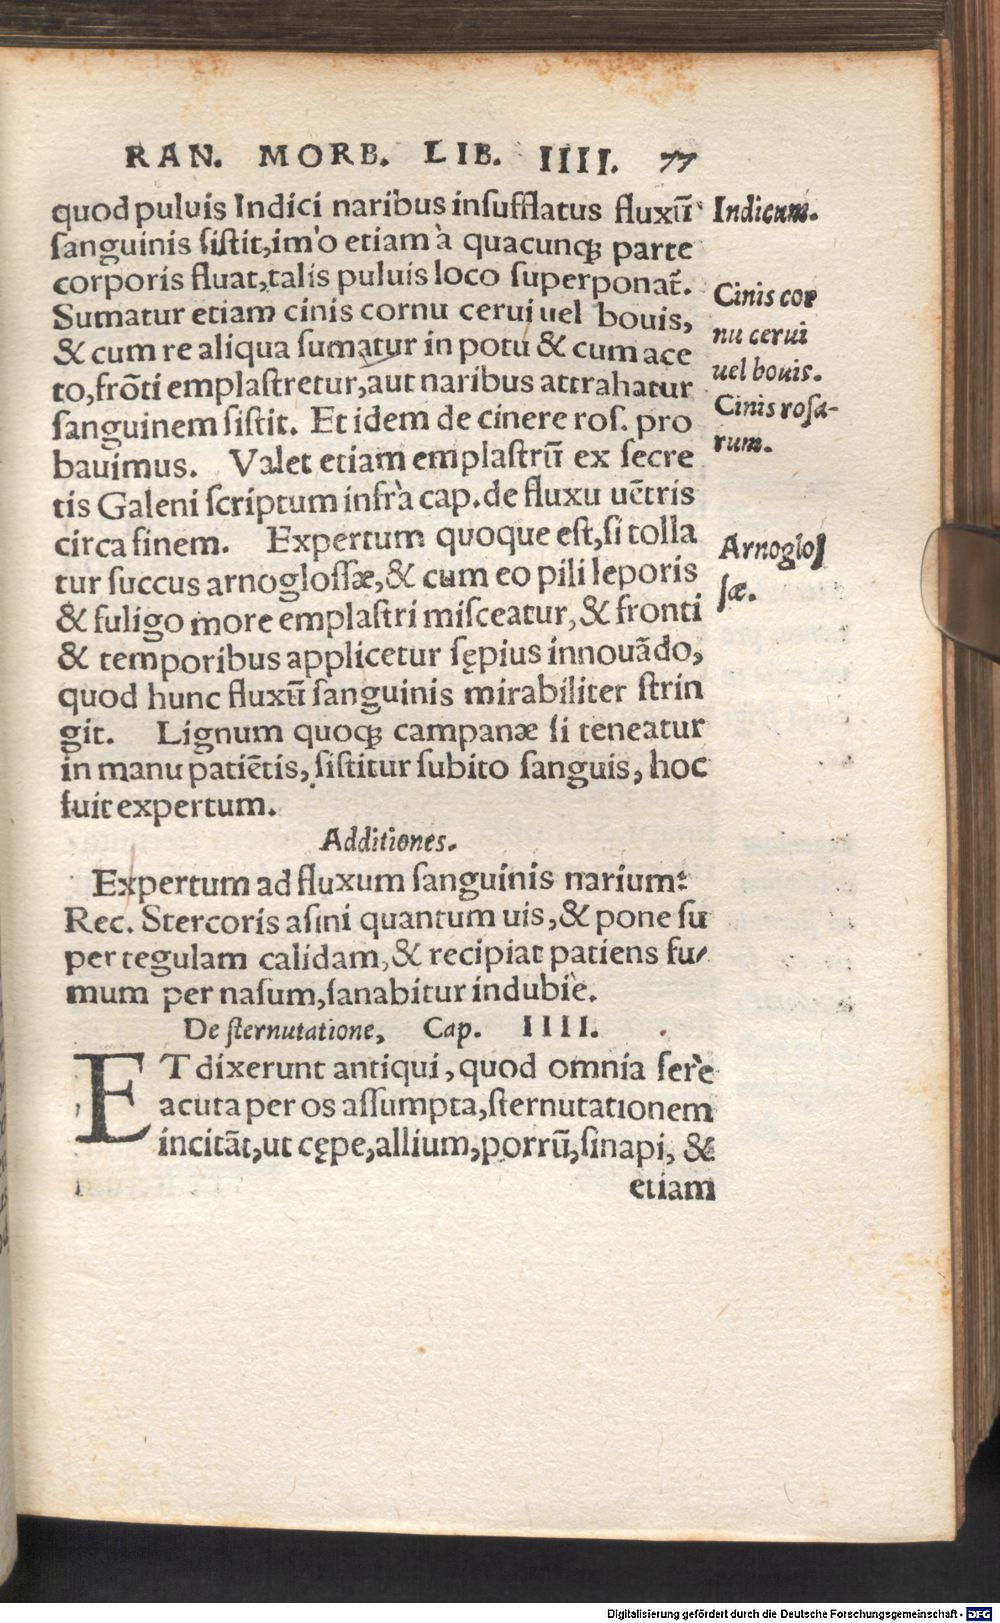 RAN. MORB. LIB. IIII. 77
quod puluis Indici naribus insufflatus fluxū
sanguinis sistit, imò etiam à quacunqꝫ parte
corporis fluat, talis puluis loco superponat᷑.
Sumatur etiam cinis cornu cerui uel bouis,
& cum re aliqua sumatur in potu & cum ace
to, frōti emplastretur, aut naribus attrahatur
sanguinem sistit. Et idem de cinere ros. pro
bauimus. Valet etiam emplastrū ex secre
tis Galeni scriptum infrà cap. de fluxu uētris
circa finem. Expertum quoque est, si tolla
tur succus arnoglossæ, & cum eo pili leporis
& fuligo more emplastri misceatur, & fronti
& temporibus applicetur sępius innouādo,
quod hunc fluxū sanguinis mirabiliter strin
git. Lignum quoqꝫ campanæ si teneatur
in manu patiētis, sistitur subito sanguis, hoc
fuit expertum.
Indicum.
Cinis cor
nu cerui
uel bouis.
Cinis rosa-
rum.
Arnoglos
sæ.
Additiones.
Expertum ad fluxum sanguinis narium:
Rec. Stercoris asini quantum uis, & pone su
per tegulam calidam, & recipiat patiens fu-
mum per nasum, sanabitur indubiè.
De sternutatione, Cap. IIII.
ET dixerunt antiqui, quod omnia ferè
acuta per os assumpta, sternutationem
incitāt, ut cępe, allium, porrū, sinapi, &
etiam
Digitalisierung gefördert durch die Deutsche Forschungsgemeinschaft - DFG